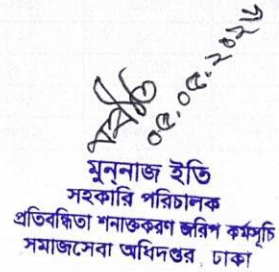 ০৫.০৫.২০২৬
মুননাজ ইতি
সহকারি পরিচালক
প্রতিবন্ধিতা শনাক্তকরণ জরিপ কর্মসূচি
সমাজসেবা অধিদপ্তর, ঢাকা